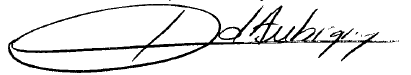 D d'Aubigny